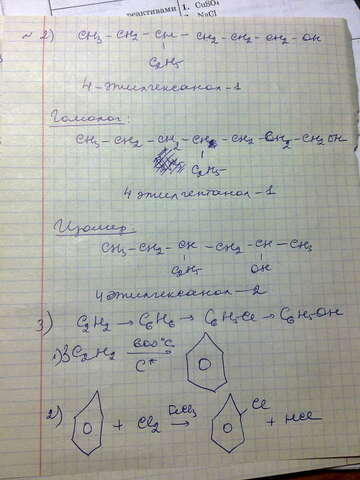 реактивами 1. CuSO₄
2. NaCl
№ 2) CH₃ - CH₂ - CH - CH₂ - CH₂ - CH₂ - OH
C₂H₅
4-этилгексанол-1
Гомолог:
CH₃ - CH₂ - CH₂ - CH - CH₂ - CH₂ - CH₂OH
C₂H₅
4 этилгептанол-1
Изомер
CH₃ - CH₂ - CH - CH₂ - CH - CH₃
C₂H₅ OH
4этилгексанол-2
3) C₂H₂ → C₆H₆ → C₆H₅Cl → C₆H₅OH
1) 3C₂H₂ 600°C C* →
2) + Cl₂ → Cl + HCl